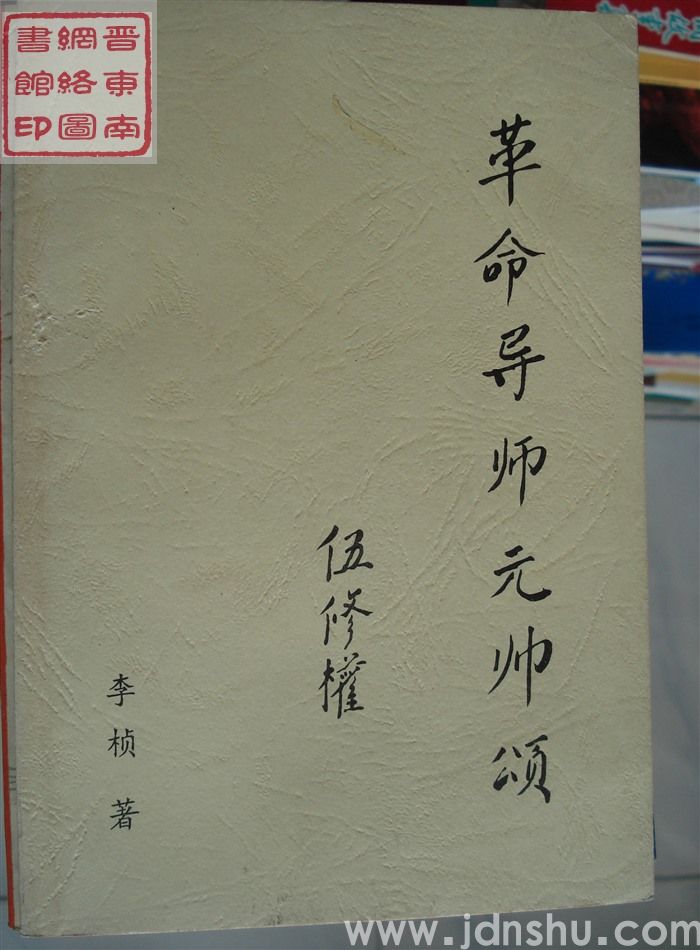 晋東南
網絡圖
書館印
革命导师元帅颂
伍修權
李桢著
www.jdnshu.com